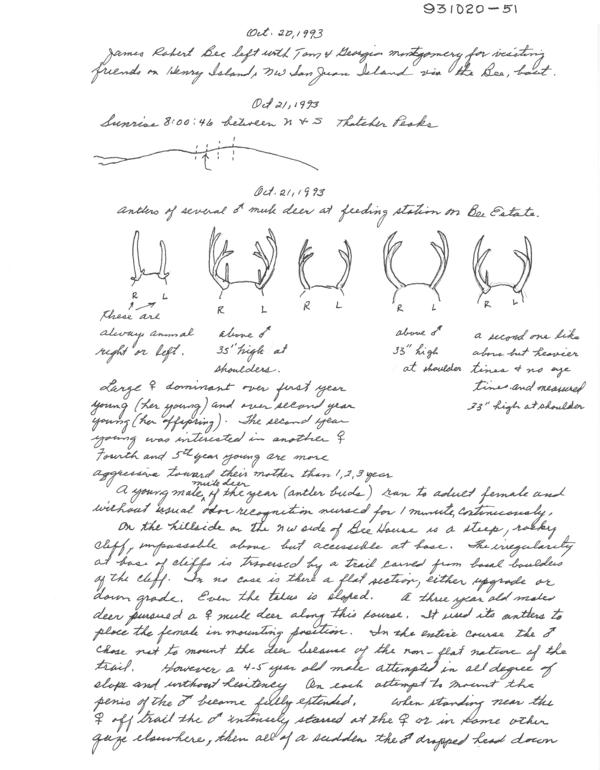 931020-51
Oct. 20, 1993
James Robert Bee left with Tom & Georgia Montgomery for visiting
friends on Henry Island, NW San Juan Island via the Bee, boat.
Oct 21, 1993
Sunrise 8:00:46 between N & S Thatcher Peaks
Oct. 21, 1993
Antlers of several ♂ mule deer at feeding station on Bee Estate.
R L R L R L R L R L
These are
always animal
right or left.
above ♂
35" high at
shoulders.
above ♂
33" high
at shoulder
a second one like
above but heavier
tines & no eye
tines and measured
33" high at shoulder
Large ♀ dominant over first year
young (her young) and over second year
young (her offspring). The second year
young was interested in another ♀
Fourth and 5th year young are more
aggressive toward their mother than 1, 2, 3 year
A young male mule deer, of the year (antler buds) ran to adult female and
without usual odor recognition nursed for 1 minute, continuously.
On the hillside on the NW side of Bee House is a steep, rocky
cliff, impassable above but accessible at base. The irregularity
at base of cliffs is traversed by a trail carved from basal boulders
of the cliff. In no case is there a flat section, either upgrade or
down grade. Even the talus is sloped. A three year old male
deer pursued a ♀ mule deer along this course. It used its antlers to
place the female in mounting position. In the entire course the ♂
chose not to mount the deer because of the non-flat nature of the
trail. However a 4-5 year old male attempted in all degree of
slope and without hesitency On each attempt to mount the
penis of the ♂ became fully extended. When standing near the
♀ off trail the ♂ intensely starred at the ♀ or in some other
gaze elsewhere, then all of a sudden the ♂ dropped head down